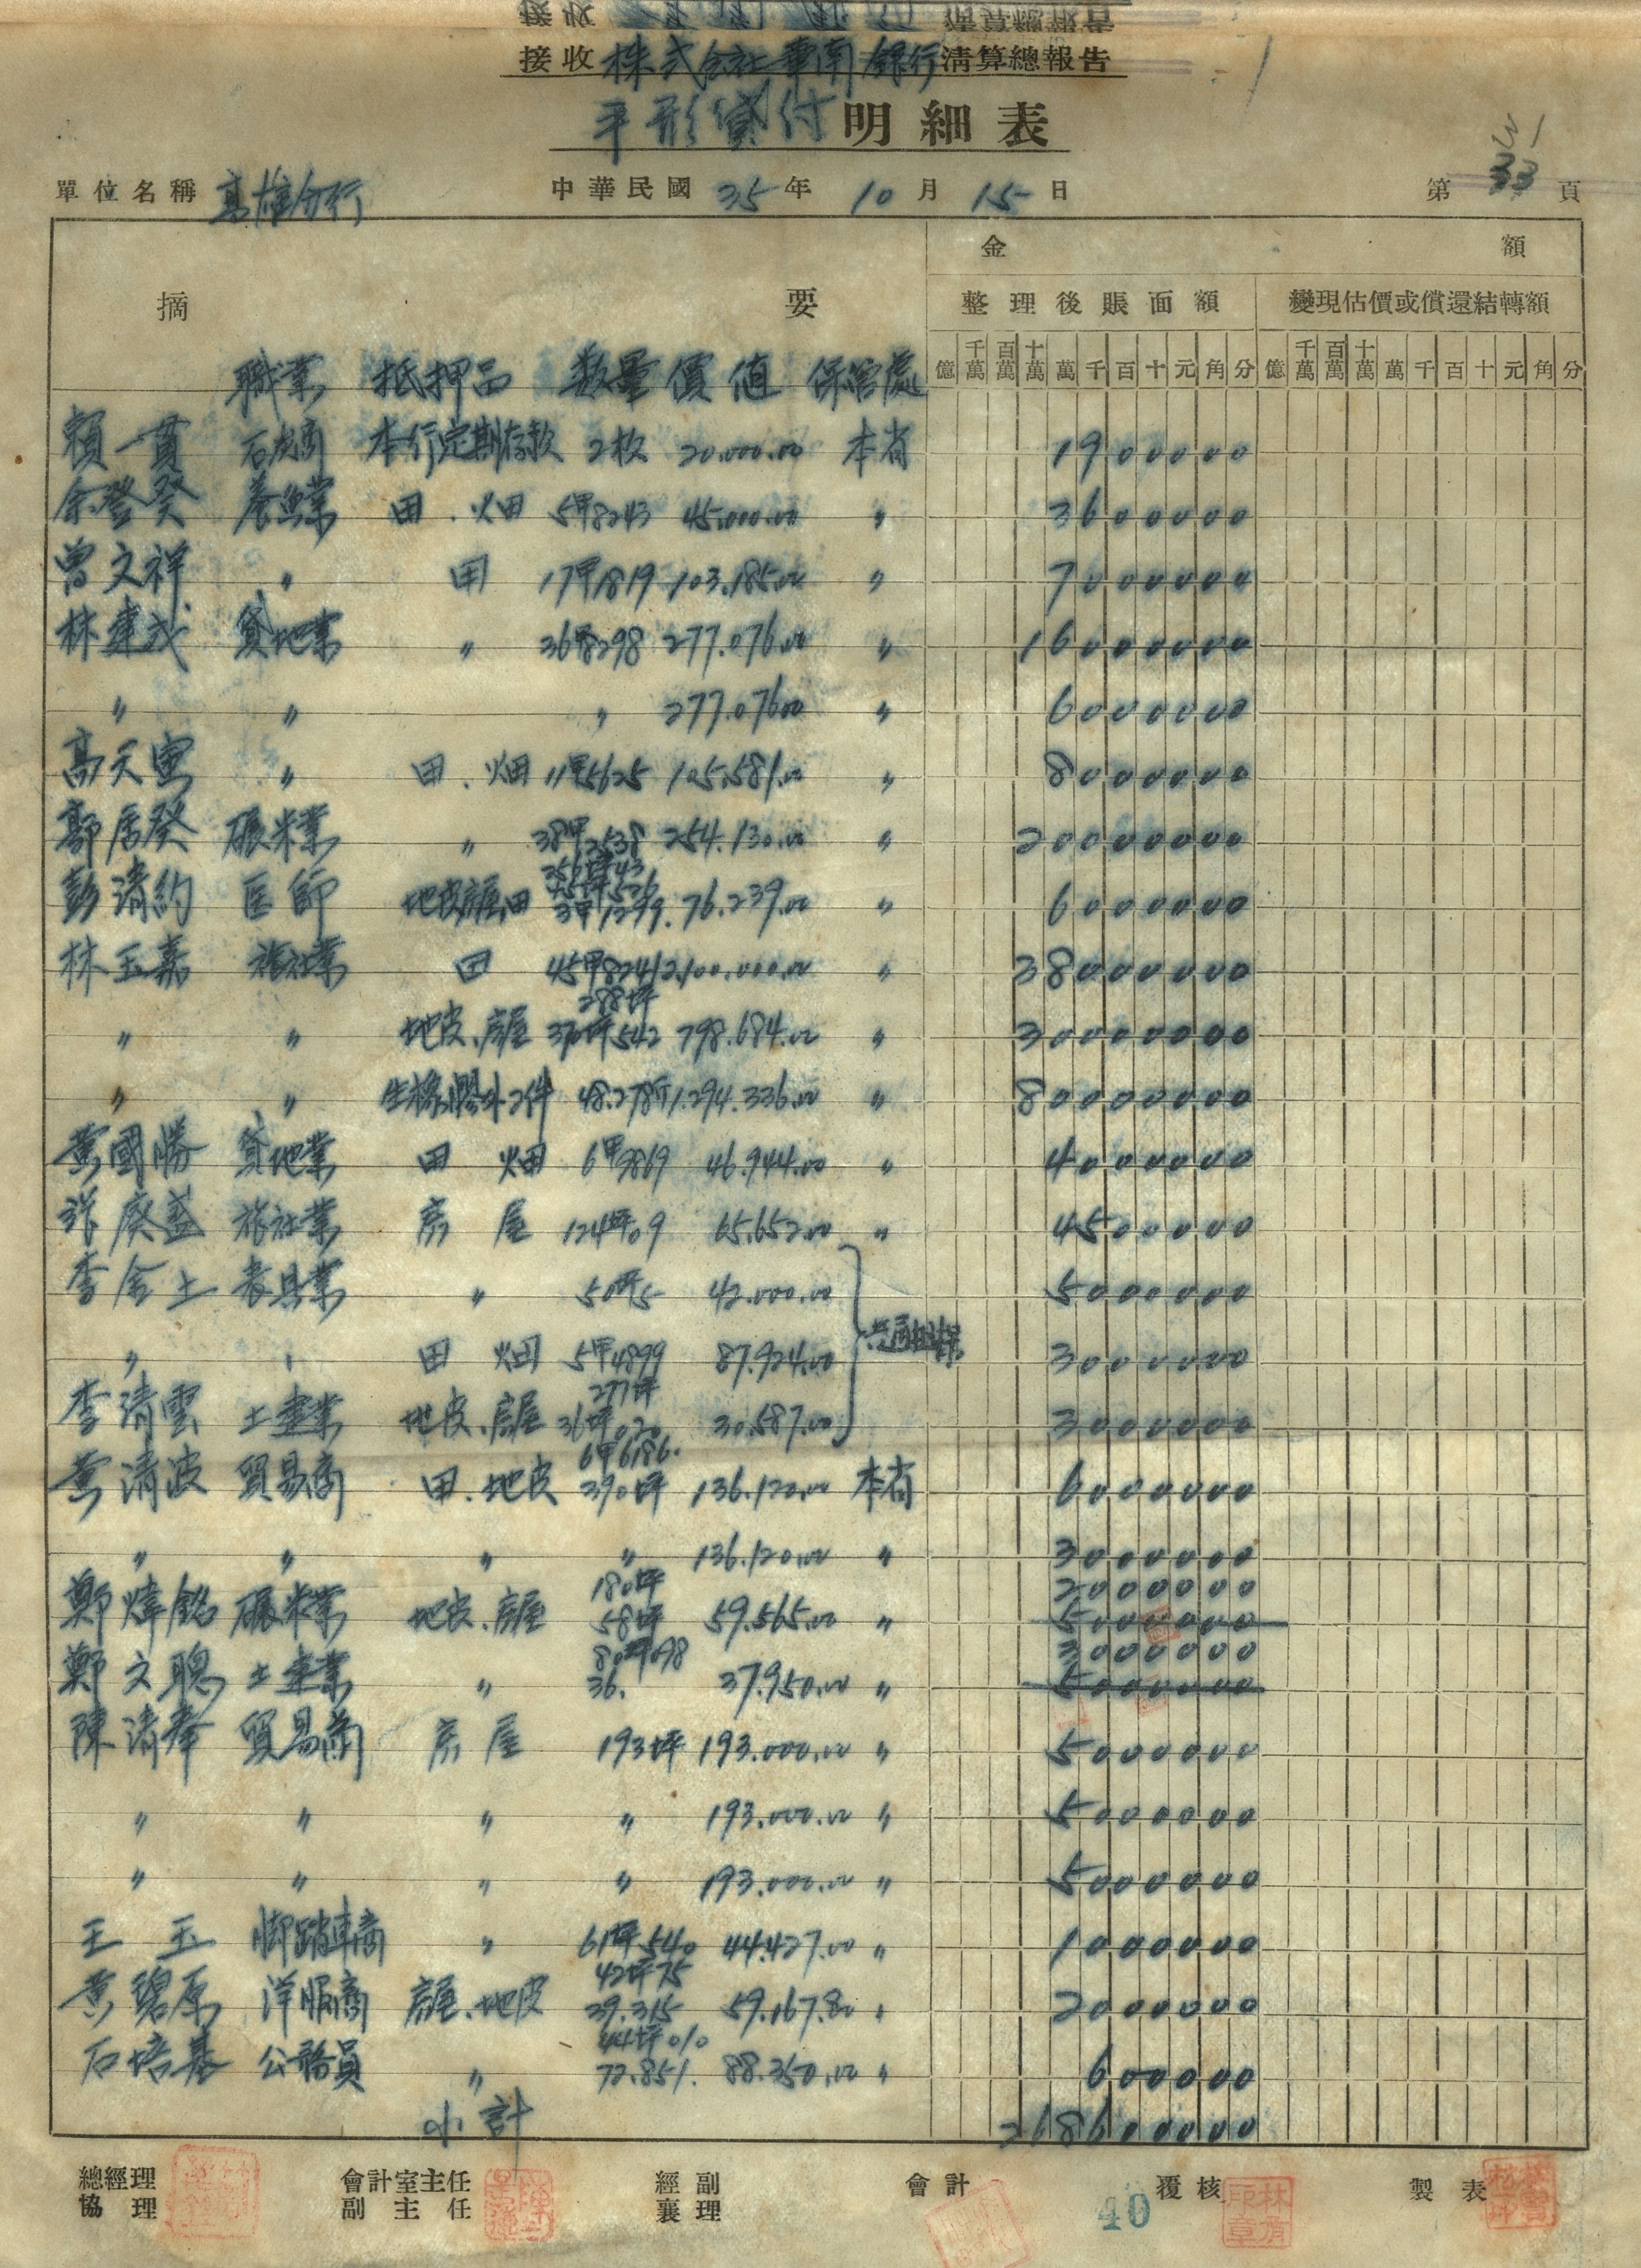 接收株式会社華南銀行清算總報告
平形貸付明細表
單位名稱 高雄分行 中華民國35年10月15日 第33頁
金額
摘要 整理後賬面額 變現估價或償還結轉額
億 千萬 百萬 十萬 萬 千 百 十 元 角 分 億 千萬 百萬 十萬 萬 千 百 十 元 角 分
職業 抵押品 数量 價值 保管處
賴一貫 石炭商 本行定期存款 2枚 20,000.00 本省 1900000
余登癸 養魚業 田.畑 5甲8243 45,000.00 〃 3600000
曾文祥 〃 田 17甲1819 103,185.00 〃 7000000
林達成 貸地業 〃 36甲8298 277.076.00 〃 16000000
〃 〃 〃 277.076.00 〃 6000000
高天 〃 田.畑 11甲5625 105,581.00 〃 8000000
郭居癸 碾米業 〃 38甲2538 254.130.00 〃 20000000
彭清約 医師 地皮房屋田 3甲1299. 76.239.00 〃 6000000
林玉嘉 旅社業 田 45甲8241 2,100.000.00 〃 38000000
288坪
〃 〃 地皮、房屋 坪542 798.684.00 〃 30000000
〃 〃 生橡膠外2件 48.278斤 1.294.336.00 〃 80000000
黄國勝 貸地業 田 畑 6甲9869 46.944.00 〃 4000000
旅社業 房屋 124坪09 65.652.00 〃 4500000
李金土 表具業 〃 50坪5 42.000.00 5000000
共通担保
〃 〃 田 畑 5甲4899 87.924.00 3000000
277坪
李清雲 土建業 地皮、房屋 36坪020 30.587.00 3000000
6甲6186.
黄清波 貿易商 田.地皮 390坪 136.120.00 本省 6000000
〃 〃 〃 〃 136.120.00 〃 3000000
180坪 2000000
鄭煒銘 碾米業 地皮、房屋 58坪 59.565.00 〃 5000000
80坪098 3000000
鄭文聰 土建業 〃 36. 37.950.00 〃 5000000
陳清奉 貿易商 房屋 193坪 193.000.00 〃 5000000
〃 〃 〃 〃 193.000.00 〃 5000000
〃 〃 〃 〃 193.000.00 〃 5000000
王玉 脚踏車商 〃 61坪540 44.427.00 〃 1000000
42坪75
黄碧原 洋服商 房屋、地皮 39.315 59.167.80 〃 2000000
44坪010
石培基 公務員 〃 72.851. 88.350.00 〃 600000
小計 268600000
總經理 會計室主任 經副 會計 覆核 製表
協理 副主任 襄理
40